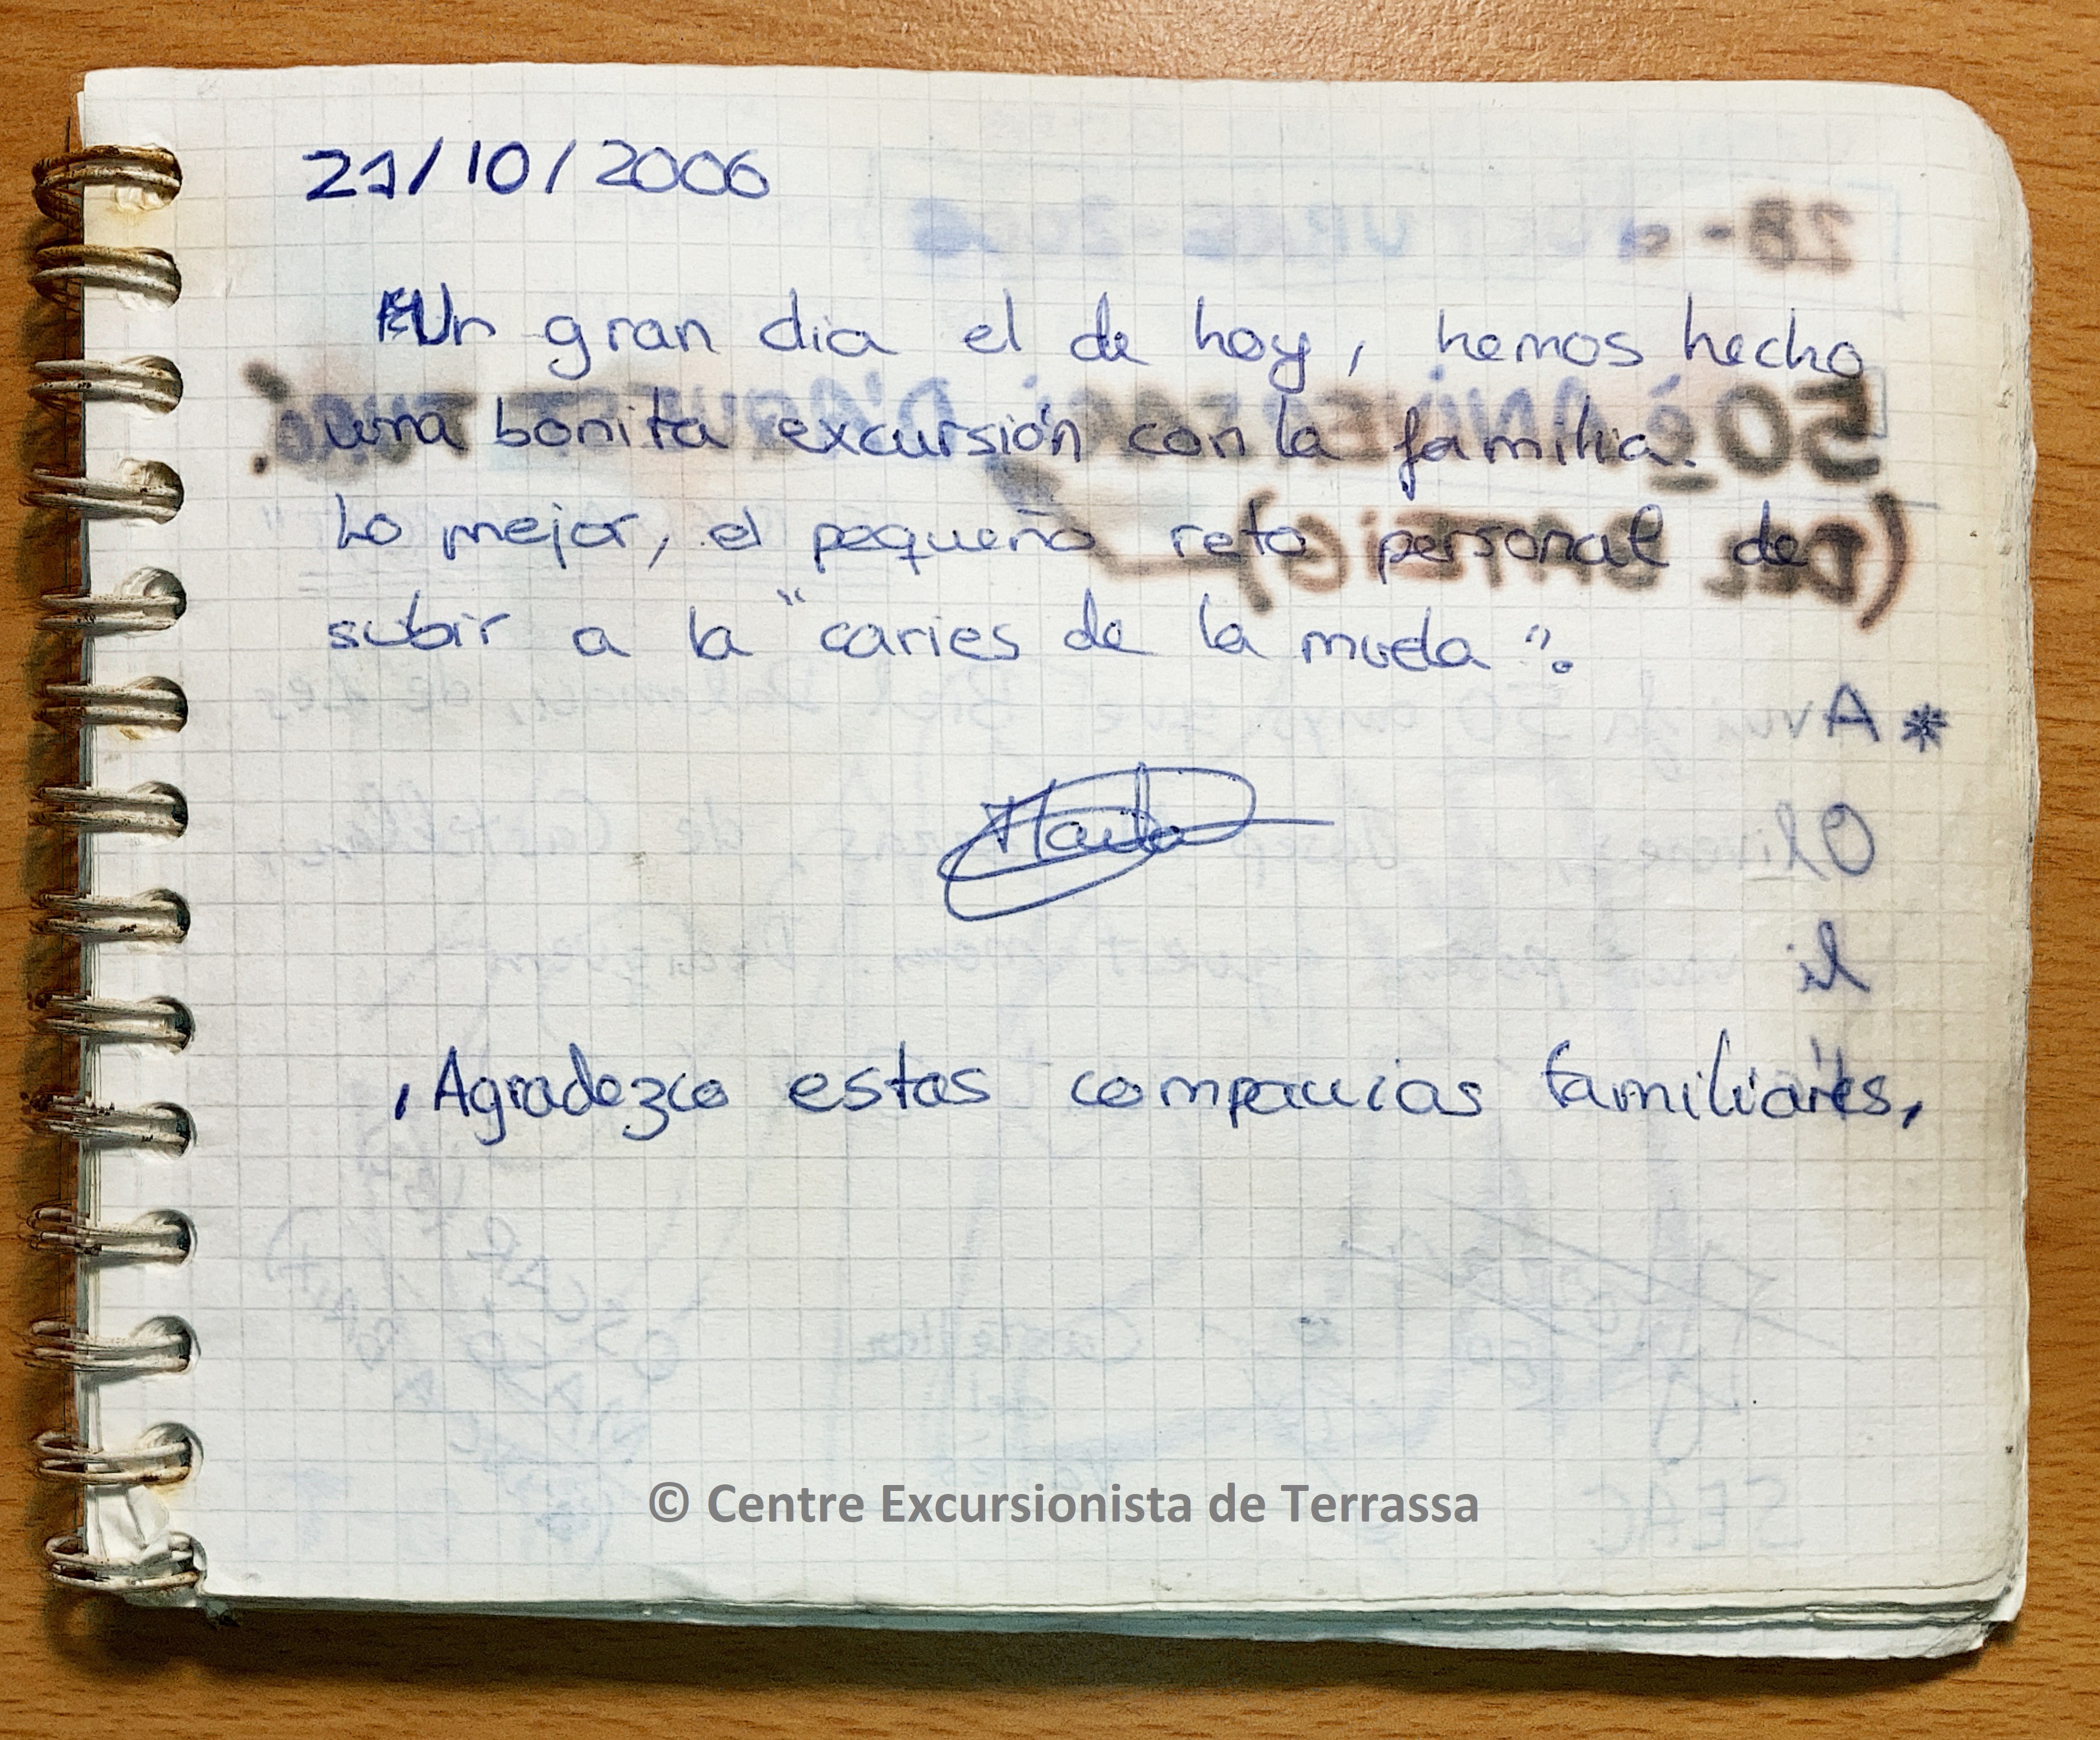 21/10/2006
Un gran dia el de hoy, hemos hecho
una bonita excursión con la familia.
Lo mejor, el pequeño reto personal de
subir a la "caries de la mueda".
, Agradezco estas compañias familiares,
© Centre Excursionista de Terrassa